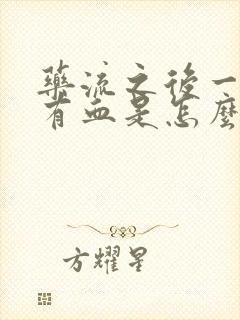 藥流之後一
有血是怎麼
方耀星